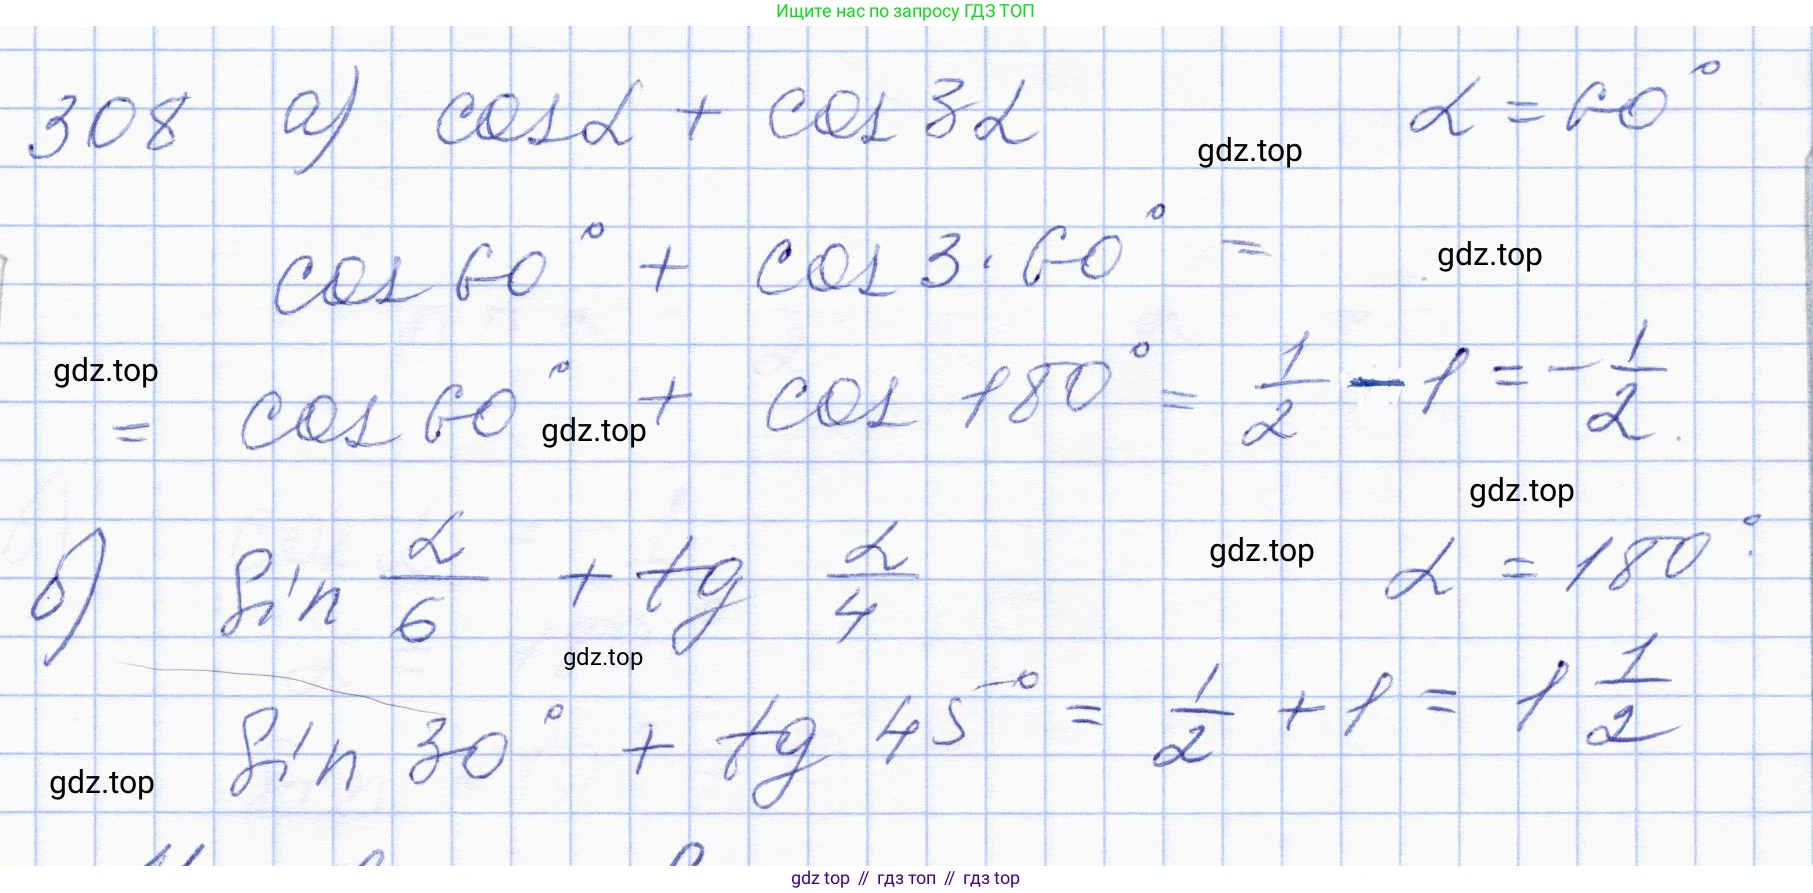 Ищите нас по запросу ГДЗ ТОП
308 а) cos α + cos 3α α = 60°
gdz.top
cos 60° + cos 3 · 60° =
gdz.top
gdz.top
= cos 60° + cos 180° = 1/2 - 1 = - 1/2.
gdz.top
gdz.top
б) sin α/6 + tg α/4 α = 180°:
gdz.top
gdz.top
sin 30° + tg 45° = 1/2 + 1 = 1 1/2
gdz.top
gdz top // гдз топ // гдз top